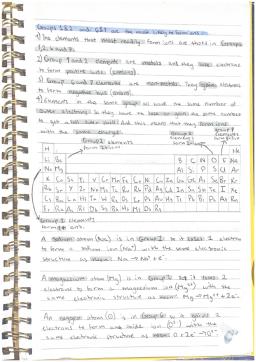 Groups 1&2 and 6&7 are the most likely to form ions.
1) The elements that most readily form ions are those in Groups
1, 2, 6 and 7.
2) Group 1 and 2 elements are metals and they lose electrons
to form positive ions (cations).
3) Group 6 and 7 elements are non-metals. They gain electrons
to form negative ions (anions).
4) Elements in the same group all have the same number of
outer electrons. So they have to lose or gain the same number
to get a full outer shell. And this means that they form ions
with the same charges.
Group 2 elements
form 2+ ions
Group 6
elements
form 2- ions
group 7
elements
form 1- ions
H He
Li Be B C N O F Ne
Na Mg Al Si P S Cl Ar
K Ca Sc Ti V Cr Mn Fe Co Ni Cu Zn Ga Ge As Se Br Kr
Rb Sr Y Zr Nb Mo Tc Ru Rh Pd Ag Cd In Sn Sb Te I Xe
Cs Ba La Hf Ta W Re Os Ir Pt Au Hg Tl Pb Bi Po At Rn
Fr Ra Ac Rf Db Sg Bh Hs Mt Ds Rg
Group 1 elements
form 1+ ions.
A sodium atom (Na) is in Group 1 so it loses 1 electron
to form a sodium ion (Na⁺) with the same electronic
structure as neon: Na → Na⁺ + e⁻.
A magnesium atom (Mg) is in Group 2 so it loses 2
electrons to form a magnesium ion (Mg²⁺) with the
same electronic structure as neon: Mg → Mg²⁺ + 2e⁻
An oxygen atom (O) is in Group 6 so it gains 2
electrons to form an oxide ion (O²⁻) with the
same electronic structure as neon: O + 2e⁻ → O²⁻.